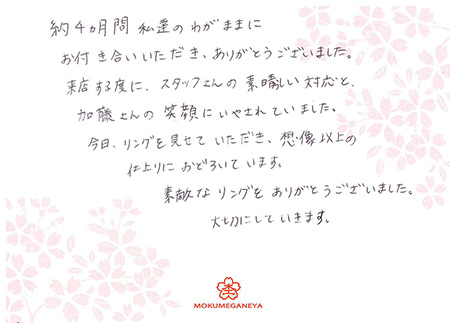 約4ヵ月間 私達のわがままに
お付き合いいただき、ありがとうございました。
来店する度に、スタッフさんの素晴しい対応と、
加藤さんの笑顔にいやされていました。
今日、リングを見せていただき、想像以上の
仕上りにおどろいています。
素敵なリングをありがとうございました。
大切にしていきます。
MOKUMEGANEYA